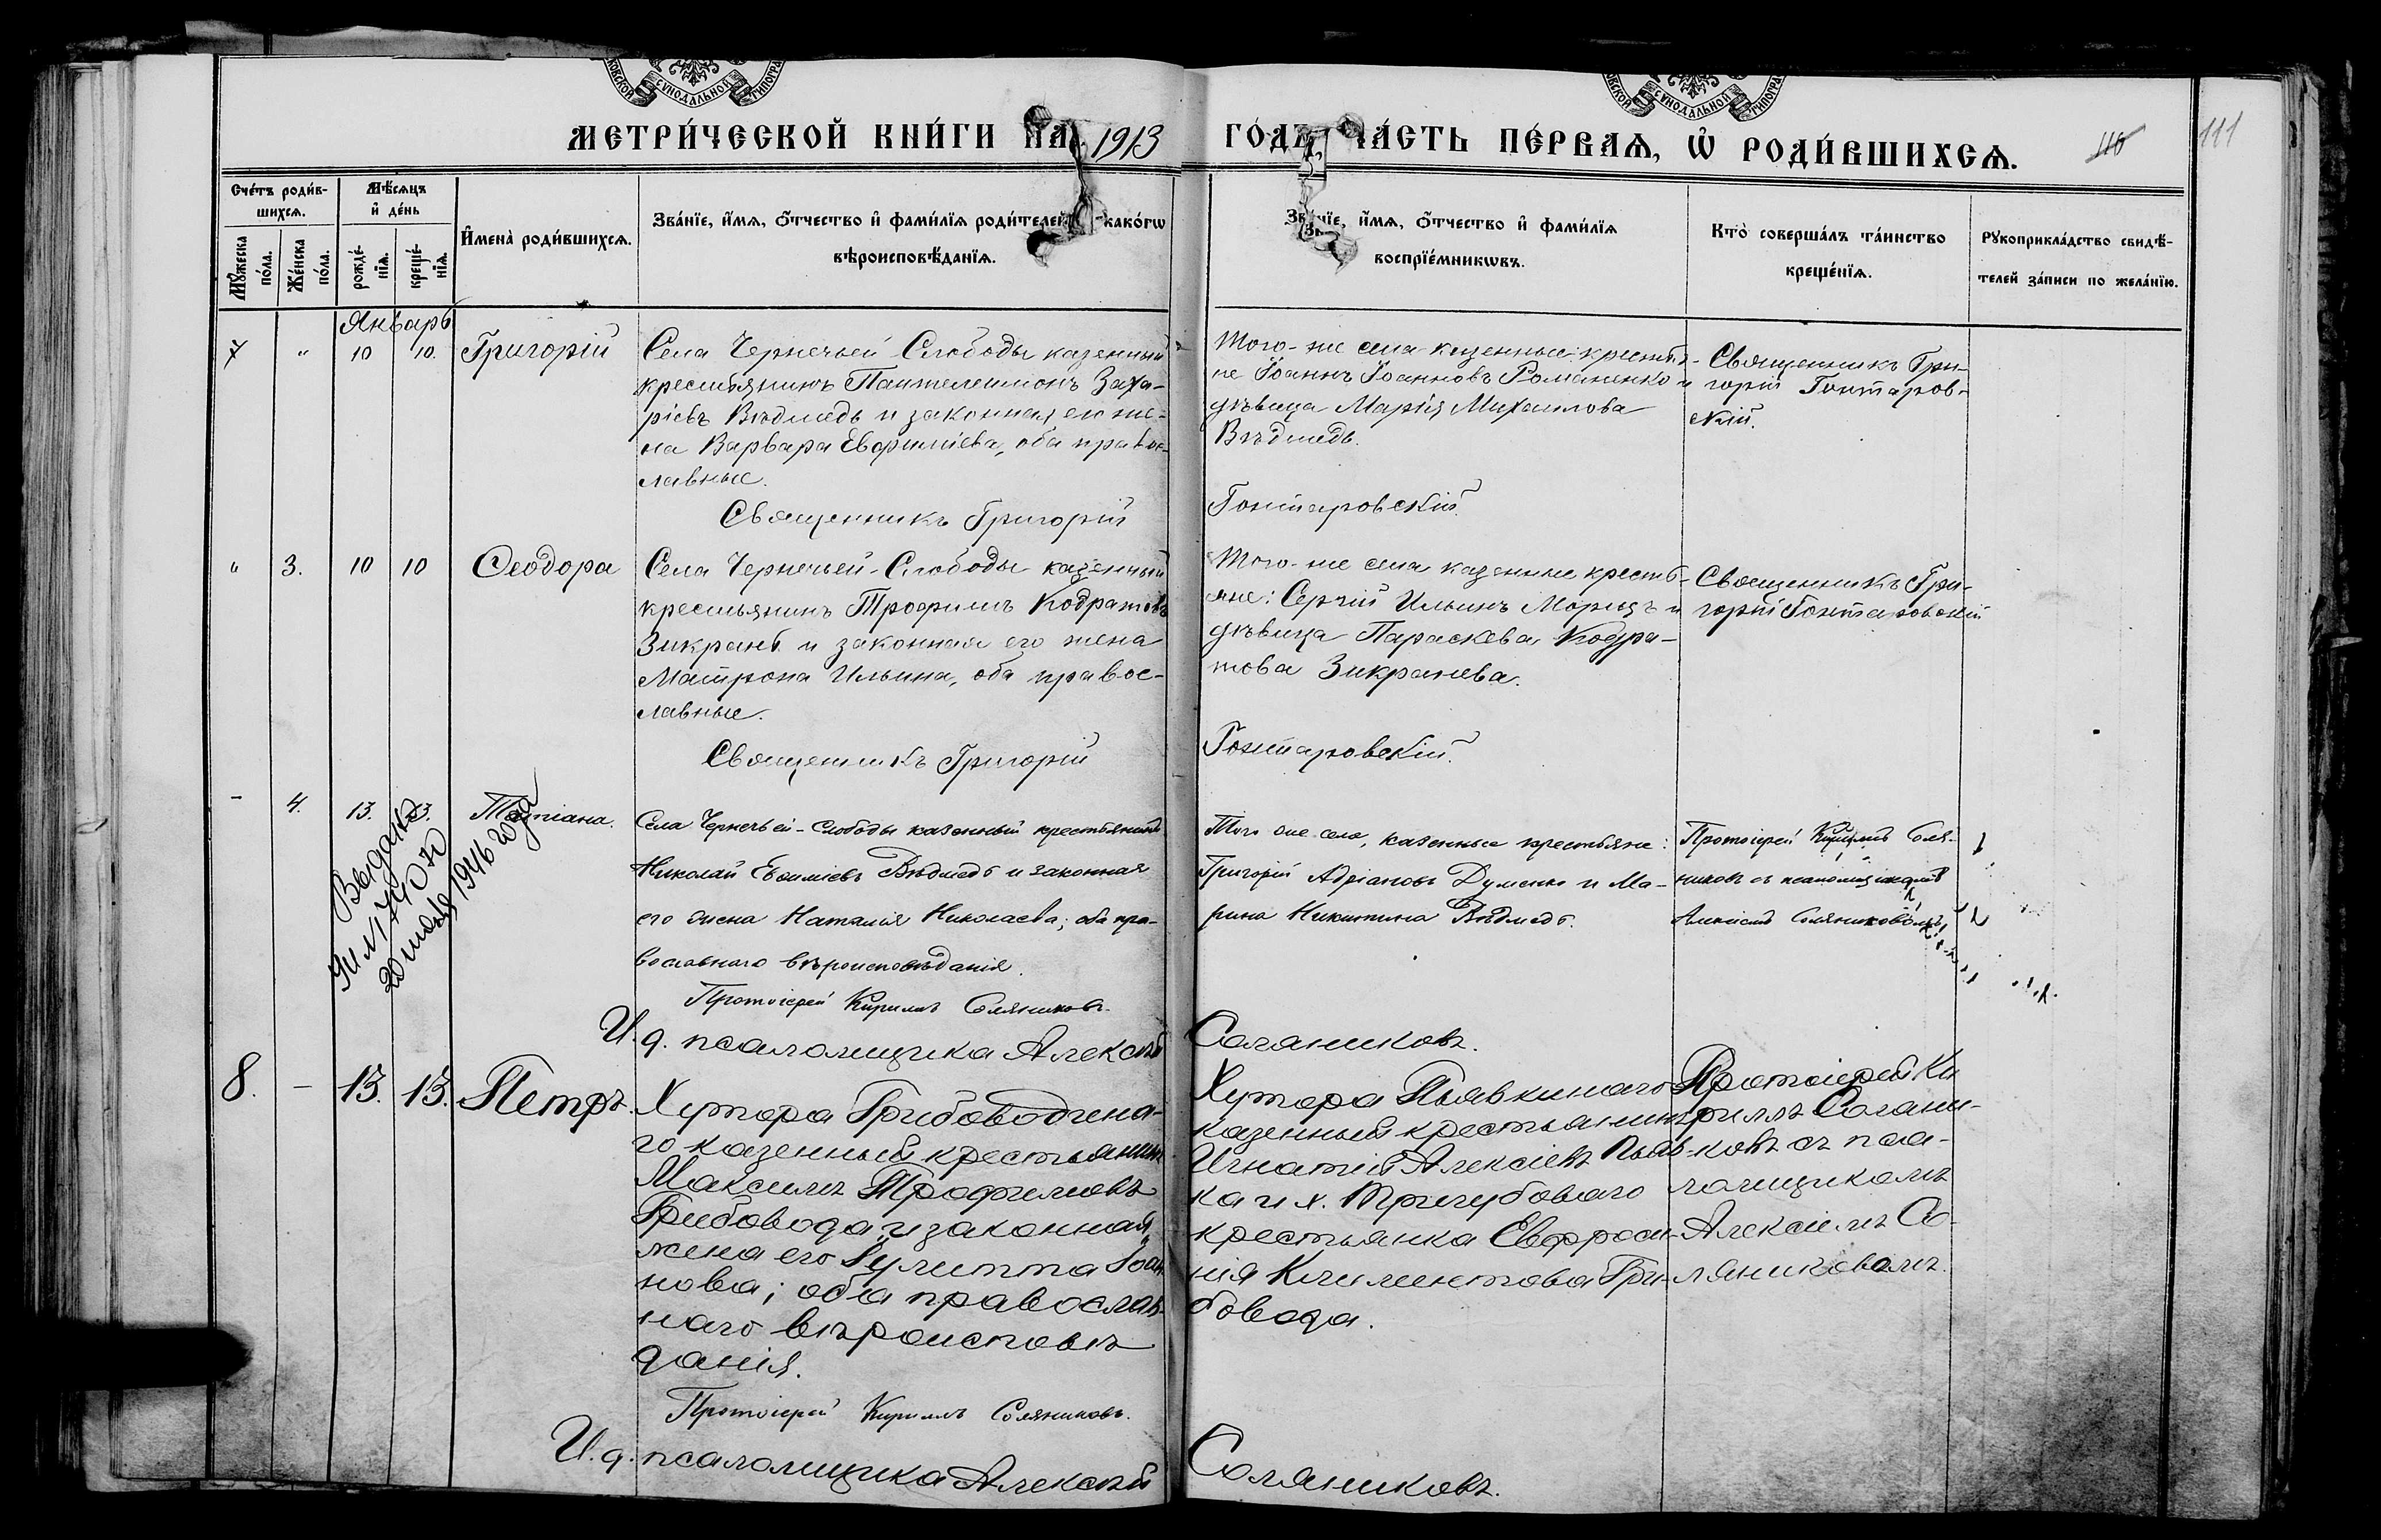 СУНОДАЛЬНОЙ
СУНОДАЛЬНОЙ
МЕТРИ́ЧЕСКОЙ КНИ́ГИ НА 1913
ГОДЪ ЧА́СТЬ ПЕ́РВАѦ, Ѡ҆ РОДИ́ВШИХСѦ.
110
111
Сче́тъ роди́в-
шихсѧ.
Мѣ́сѧцъ
и҆ де́нь
Мꙋ́жеска
по́ла.
Же́нска
по́ла.
рожде́-
нїѧ.
креще́-
нїѧ.
И҆мена̀ роди́вшихсѧ.
Зва́нїе, и҆́мѧ, ѻ҆́тчество и҆ фами́лїѧ роди́телей, и҆ како́гѡ
вѣроисповѣ́данїѧ.
Зва́нїе, и҆́мѧ, ѻ҆́тчество и҆ фами́лїѧ
воспрїе́мникѡвъ.
Кто̀ соверша́лъ та́инство
креще́нїѧ.
Рꙋкоприкла́дство свидѣ́-
телей за́писи по жела́нїю.
Январь
7 " 10 10. Григорій
Села Чернечьей Слободы казенный
крестьянинъ Пантелеимонъ Заха-
ріевъ Вѣдмедь и законная его же-
на Варвара Евфиміева, оба правос-
лавные.
Священникъ Григорій
Того-же села казенные крестья-
не Іоаннъ Іоанновъ Романенко и
дѣвица Марія Михаилова
Вѣдмедь.
Гонтаровскій.
Священникъ Гри-
горій Гонтаров-
скій.
" 3. 10 10 Ѳеодора
Села Чернечьей-Слободы казенный
крестьянинъ Трофимъ Кодратовъ
Зикрань и законная его жена
Матрона Ильина, оба правос-
лавные.
Священникъ Григорій
Того-же села казенные кресть-
яне: Сергій Ильинъ Морозъ и
дѣвица Параскева Кодра-
това Зикранева.
Гонтаровскій.
Священникъ Гри-
горій Гонтаровскій
- 4. 13. 13. Татіана.
Выдано
20 1946 года
Села Чернечьей-Слободы казенный крестьянинъ
Николай Евѳиміевъ Вѣдмедь и законная
его жена Наталія Николаева; оба пра-
вославнаго вѣроисповѣданія.
Протоіерей Кириллъ Соляниковъ.
И. д. псаломщика Алексѣй
Того же села, казенные крестьяне:
Григорій Адріановъ Думенко и Ма-
рина Никитина Вѣдмедь.
Соляниковъ.
Протоіерей Кириллъ Соля-
никовъ съ псаломщикомъ
Алексіемъ Соляниковымъ
8. - 13. 13. Петръ.
Хутора Грибоводина-
го казенный крестьянинъ
Максимъ Трофимовъ
Грибовода и законная
жена его Іулитта Іоан-
нова; оба православ-
наго вѣроисповѣ
данія.
Протоіерей Кириллъ Соляниковъ.
И. д. псаломщика Алексѣй
Хутора Пьявкинаго
казенный крестьянинъ
Игнатій Алексіевъ Пьяв-
ка и х. Тригубоваго
крестьянка Евфроси-
нія Климентова Гри-
бовода.
Соляниковъ.
Протоіерей Ки
риллъ Соляни-
ковъ съ пса-
ломщикомъ
Алексіемъ Со-
ляниковымъ.